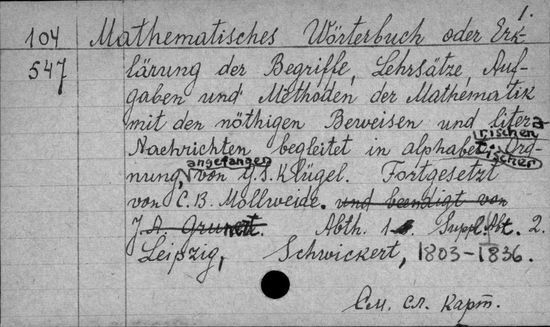 1.
104 Mathematisches Wörterbuch oder Erk-
547 lärung der Begriffe, Lehrsätze, Auf-
gaben und Methoden der Mathematik
mit den nöthigen Berweisen und litera-
rischen
Nachrichten begleitet in alphabetischer Ord-
angefangen
nung, von G.S. Klügel. Fortgesetzt
von C.B. Mollweide. und beendigt von
J.A. Grunert. Abth. 1 Suppl. Abt. 2.
Leipzig, Schwickert, 1803-1836.
См. сл. карт.